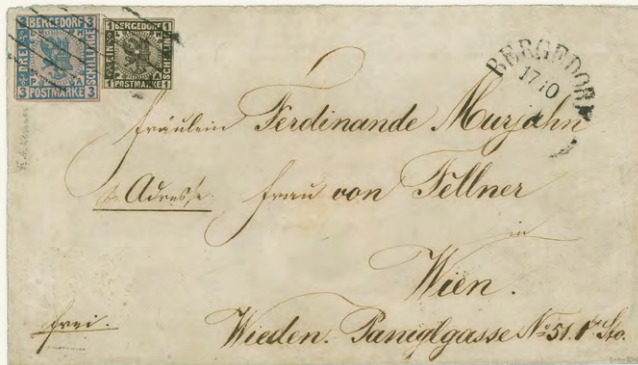 BERGEDORF
DREI
SCHILLINGE
POSTMARKE
3 3 3 3
BERGEDORF
EIN
SCHILLING
POSTMARKE
1 1 1 1
BERGEDORF
17 10
Fräulein Ferdinande Murjahn
Adresse Frau von Fellner
in
Wien.
frei.
Wieden. Paniglgasse No 51. Sto.